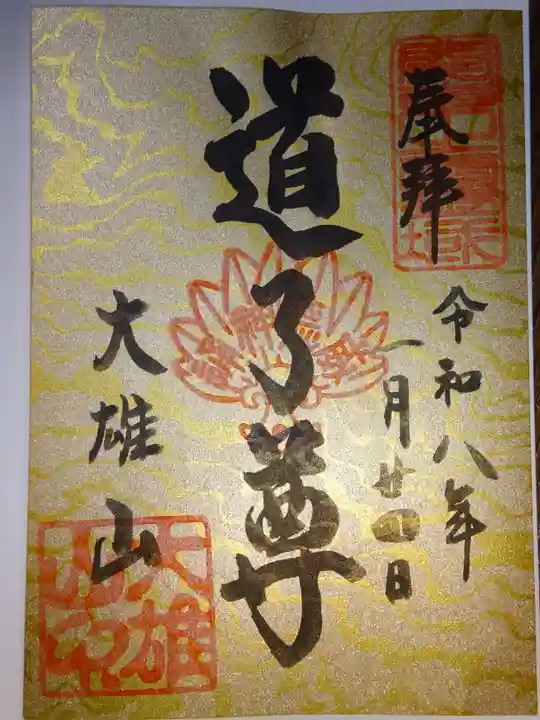 奉拜
令和八年
一月廿一日
道了尊
大雄山
大雄